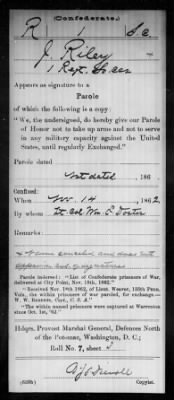 (Confederate.)
R 1 Sc
J. Riley
1 Regt.
Appears as signature to a
Parole
of which the following is a copy:
"We, the undersigned, do hereby give our Parole
of Honor not to take up arms and not to serve
in any military capacity against the United
States, until regularly Exchanged."
Parole dated
Not dated, 186
Confined:
When Nov. 14, 1862
By whom Lt. Col. Wm.
Remarks:
Name cancelled and does not
Parole indorsed: "List of Confederate prisoners of War,
delivered at City Point, Nov. 18th, 1862."
"Received Nov. 18th 1862, of Lieut. Weaver, 133th Penn.
Vols., the within prisoners of war paroled, for exchange.—
Capt., C. S. A."
"The within named prisoners were captured at Warrenton
since Oct. 1st, '62."
Hdqrs. Provost Marshal General, Defences North
of the Potomac, Washington, D. C.;
Roll No. 7, sheet
(639b) Copyist.